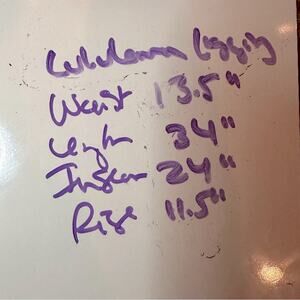 Lululemon Legging
Waist 13.5"
Length 34"
Inseam 24"
Rise 11.5"